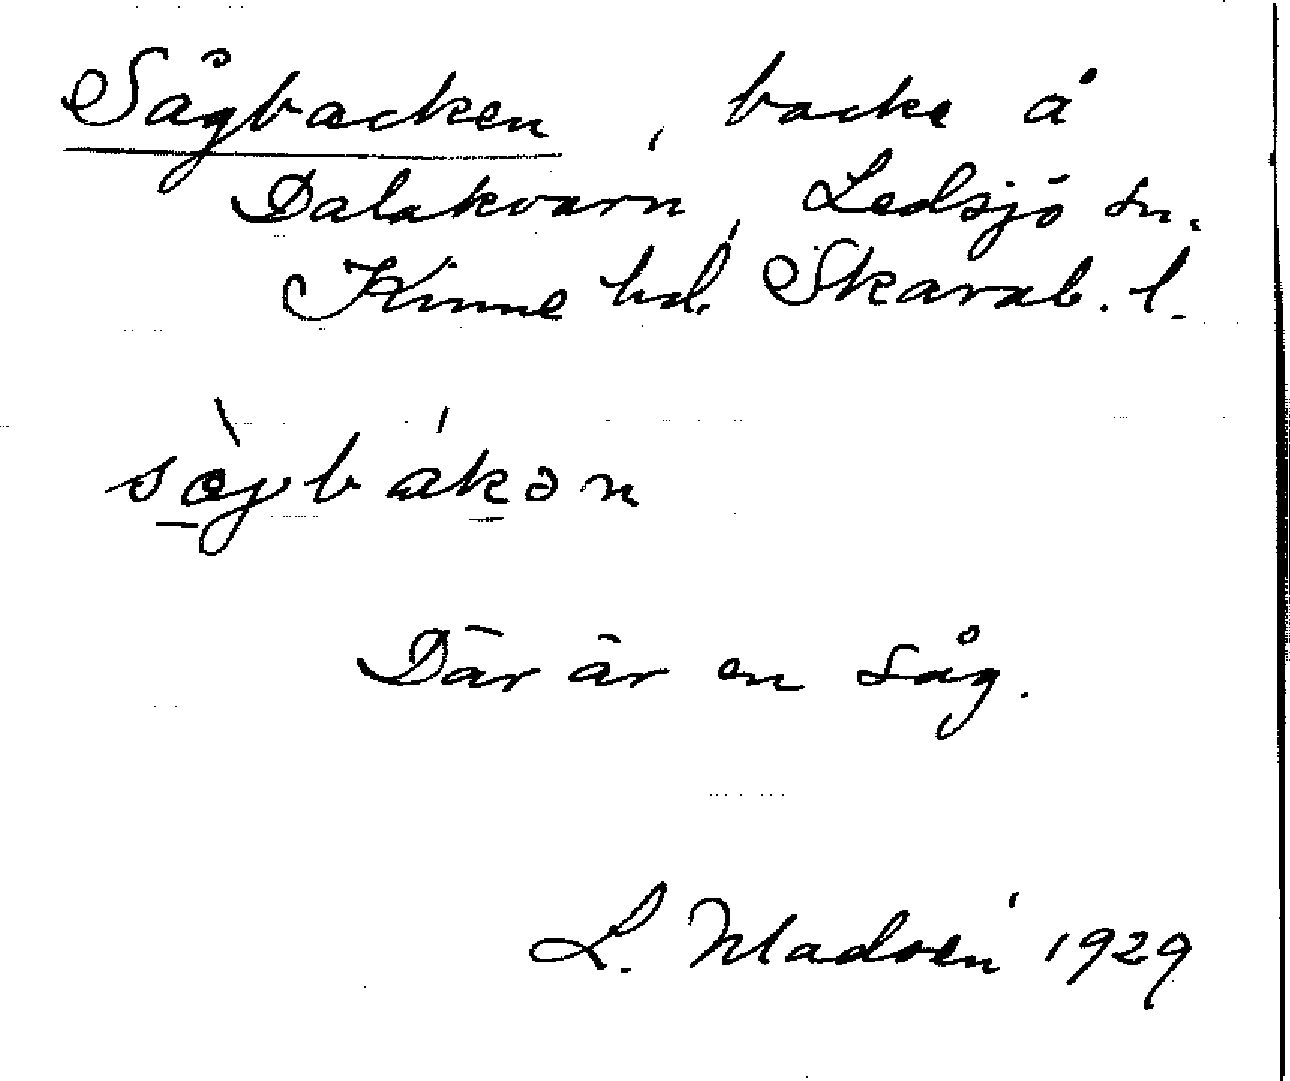 Sågbacken, backe å
Dalakvarn, Ledsjö sn.
Kinne hd. Skarab. l.
Där är en såg.
L. Madsén 1929